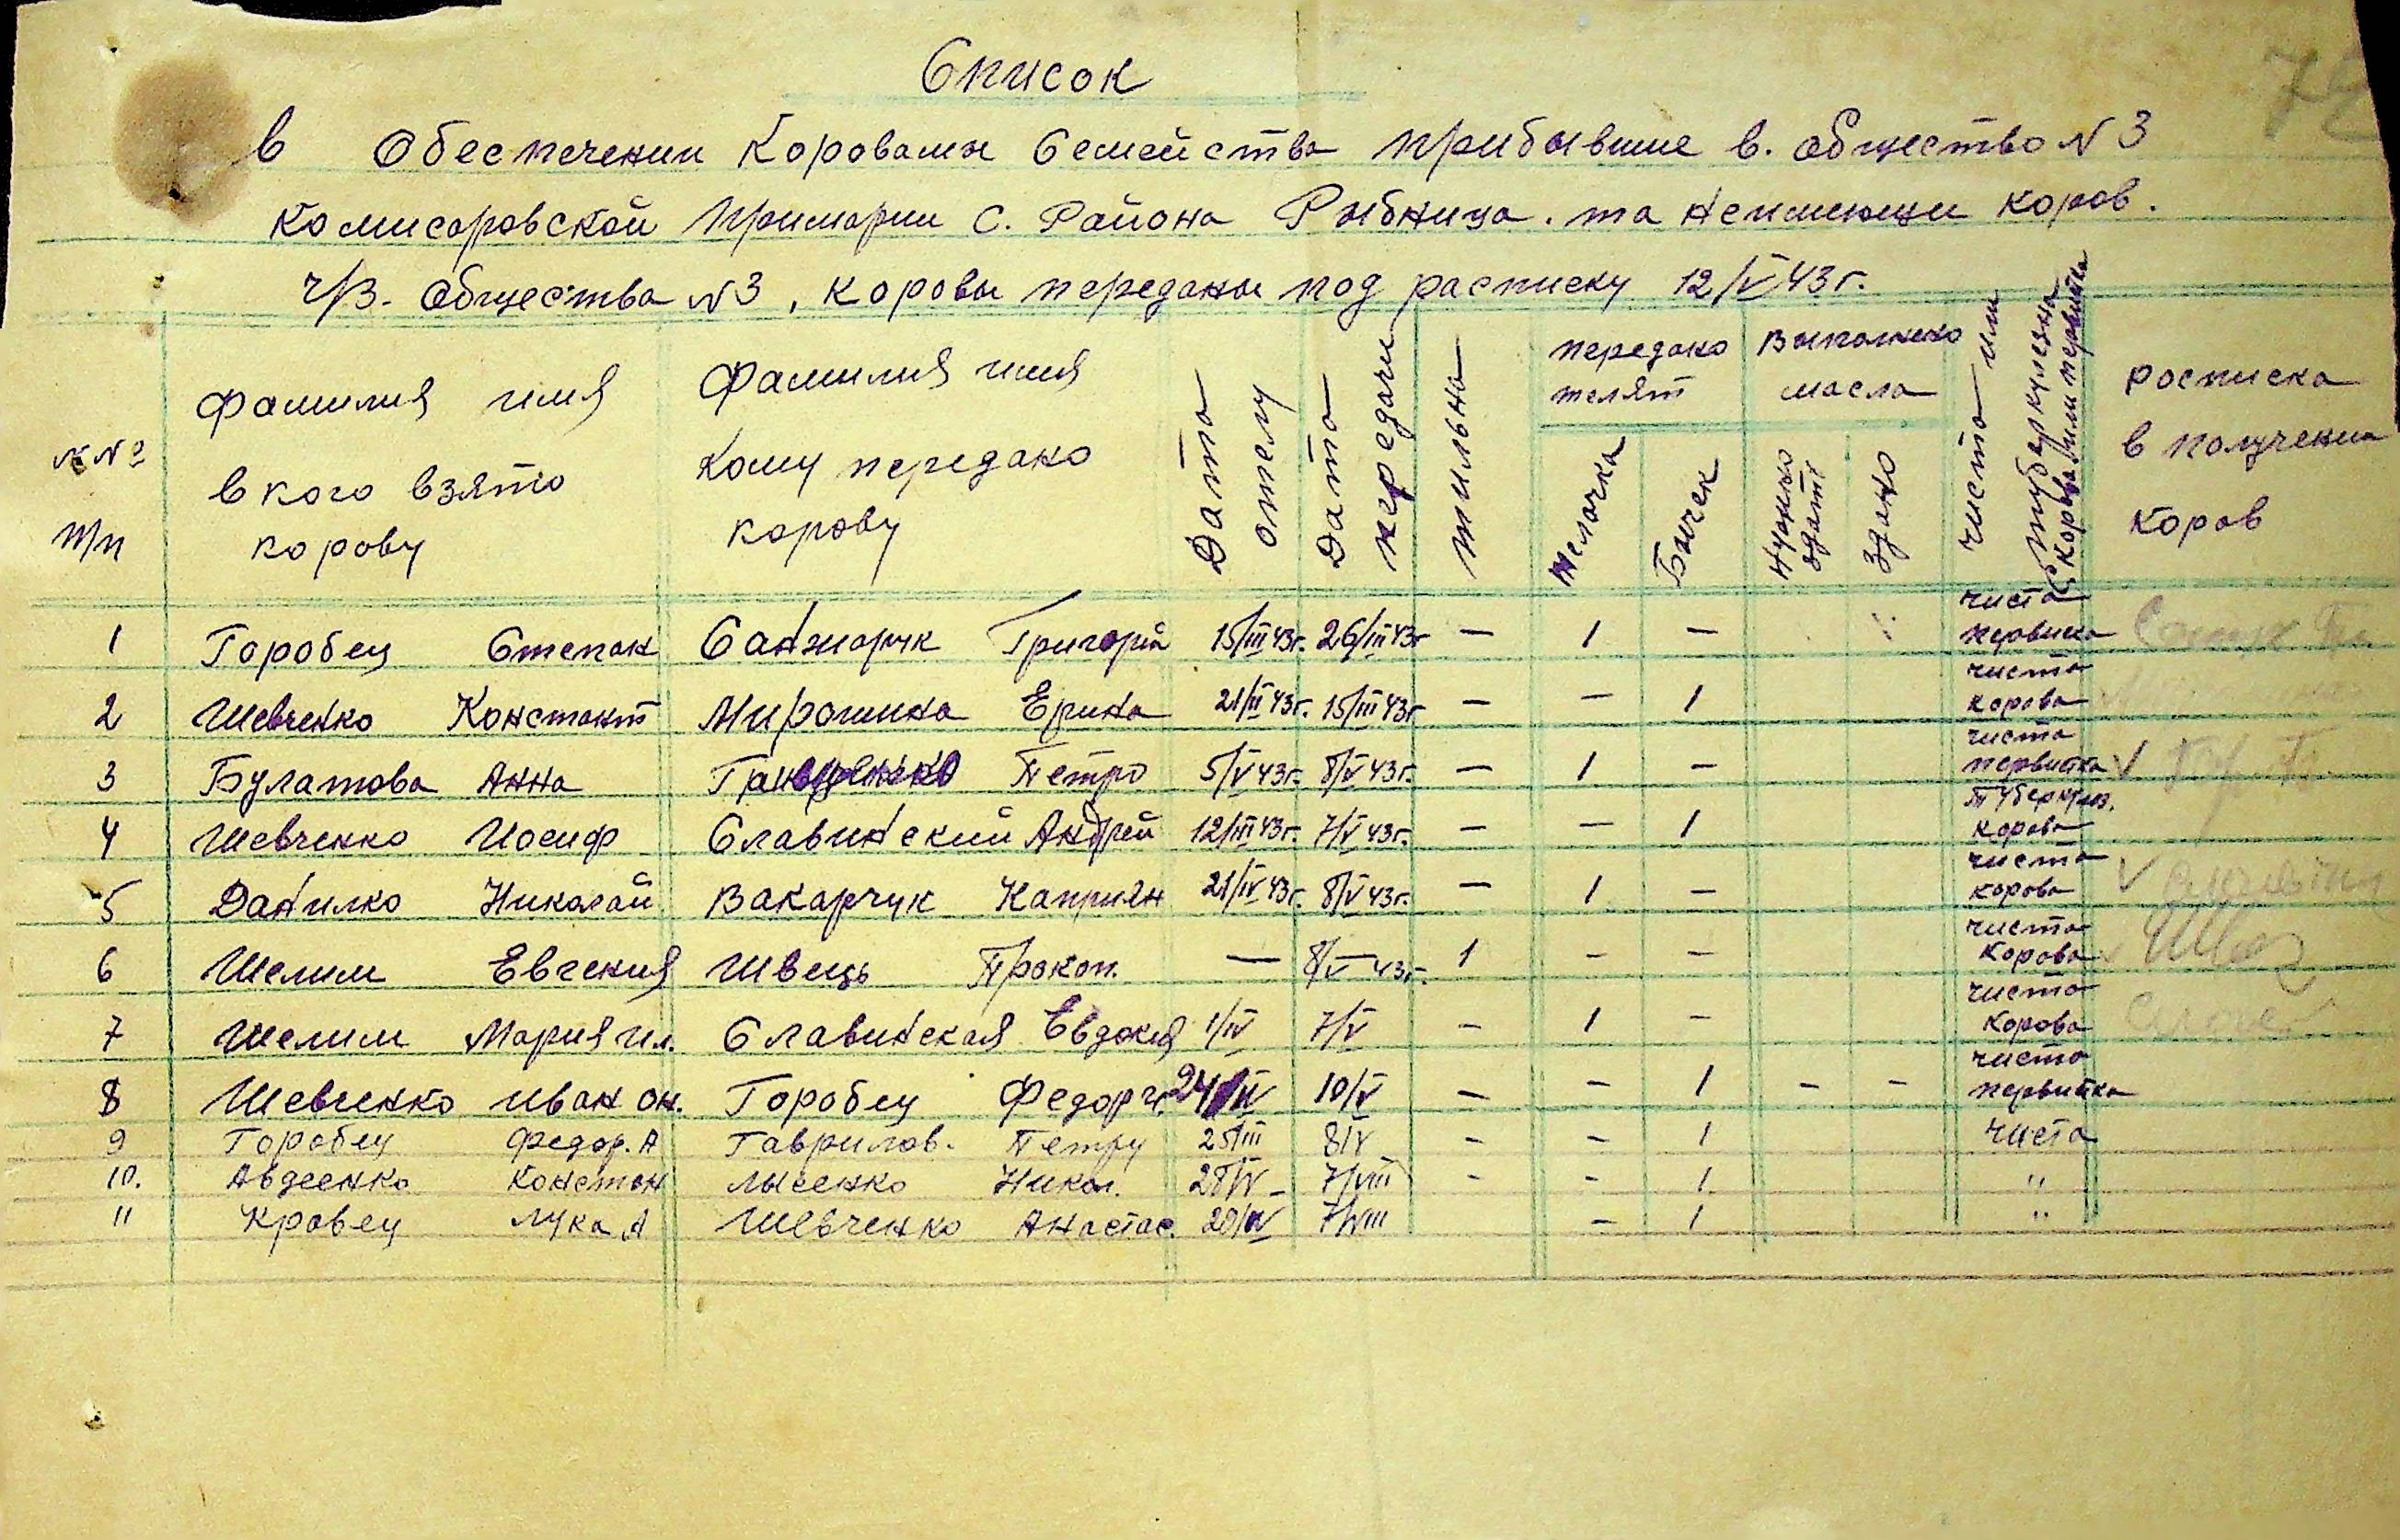 Список
в Обеспечении Коровами Семейства прибывшие в. общество N 3
Комисаровской Примарии С. Района Рыбница. та неимеющи коров.
ч/з. общества N 3, коровы переданы под расписку 12/V 43 г.
N Nº п/п
фамилия имя в кого взято корову
фамилия имя кому передано корову
Дата отелу
Дата передачи
тильна
передано телят
телочка
Бычек
выполнено масла
нужно здать
здано
чиста или туберкулезна
корова или первитка
росписка в получении коров
1 Горобец Степан Санжарук Григорій 15/III 43г. 26/III 43г — 1 — чиста первитка
2 Шевченко Констант Мирошина Ерина 21/II 43г. 15/III 43г — — 1 чиста корова
3 Булатова Анна Петро 5/V 43г. 8/V 43г. — 1 — чиста первитка V
4 Шевченко Иосиф Славинский Андрей 12/III 43г. 7/V 43г. — — 1 туберкулез. корова
5 Данилко Николай Вакарчук Каприян 21/IV 43г. 8/V 43г. — 1 — чиста корова V
6 Шелим Евгения Швець Прокоп. — 8/V 43г. 1 — — чиста корова
7 Шелим Мария Ил. Славинская Евдокия 1/IV 7/V — 1 — чиста корова
8 Шевченко иван он. Горобец Федор 24/II 10/V — — 1 — — чиста первитка
9 Горобец Федор. А Гаврилов. Петру 25/III 8/V - - 1 чиста
10. Авдеенко Констан Лысенко Никол. 7/VIII - - 1 "
11 Кравец Лука А Шевченко Анастас. 7/VIII - 1 "